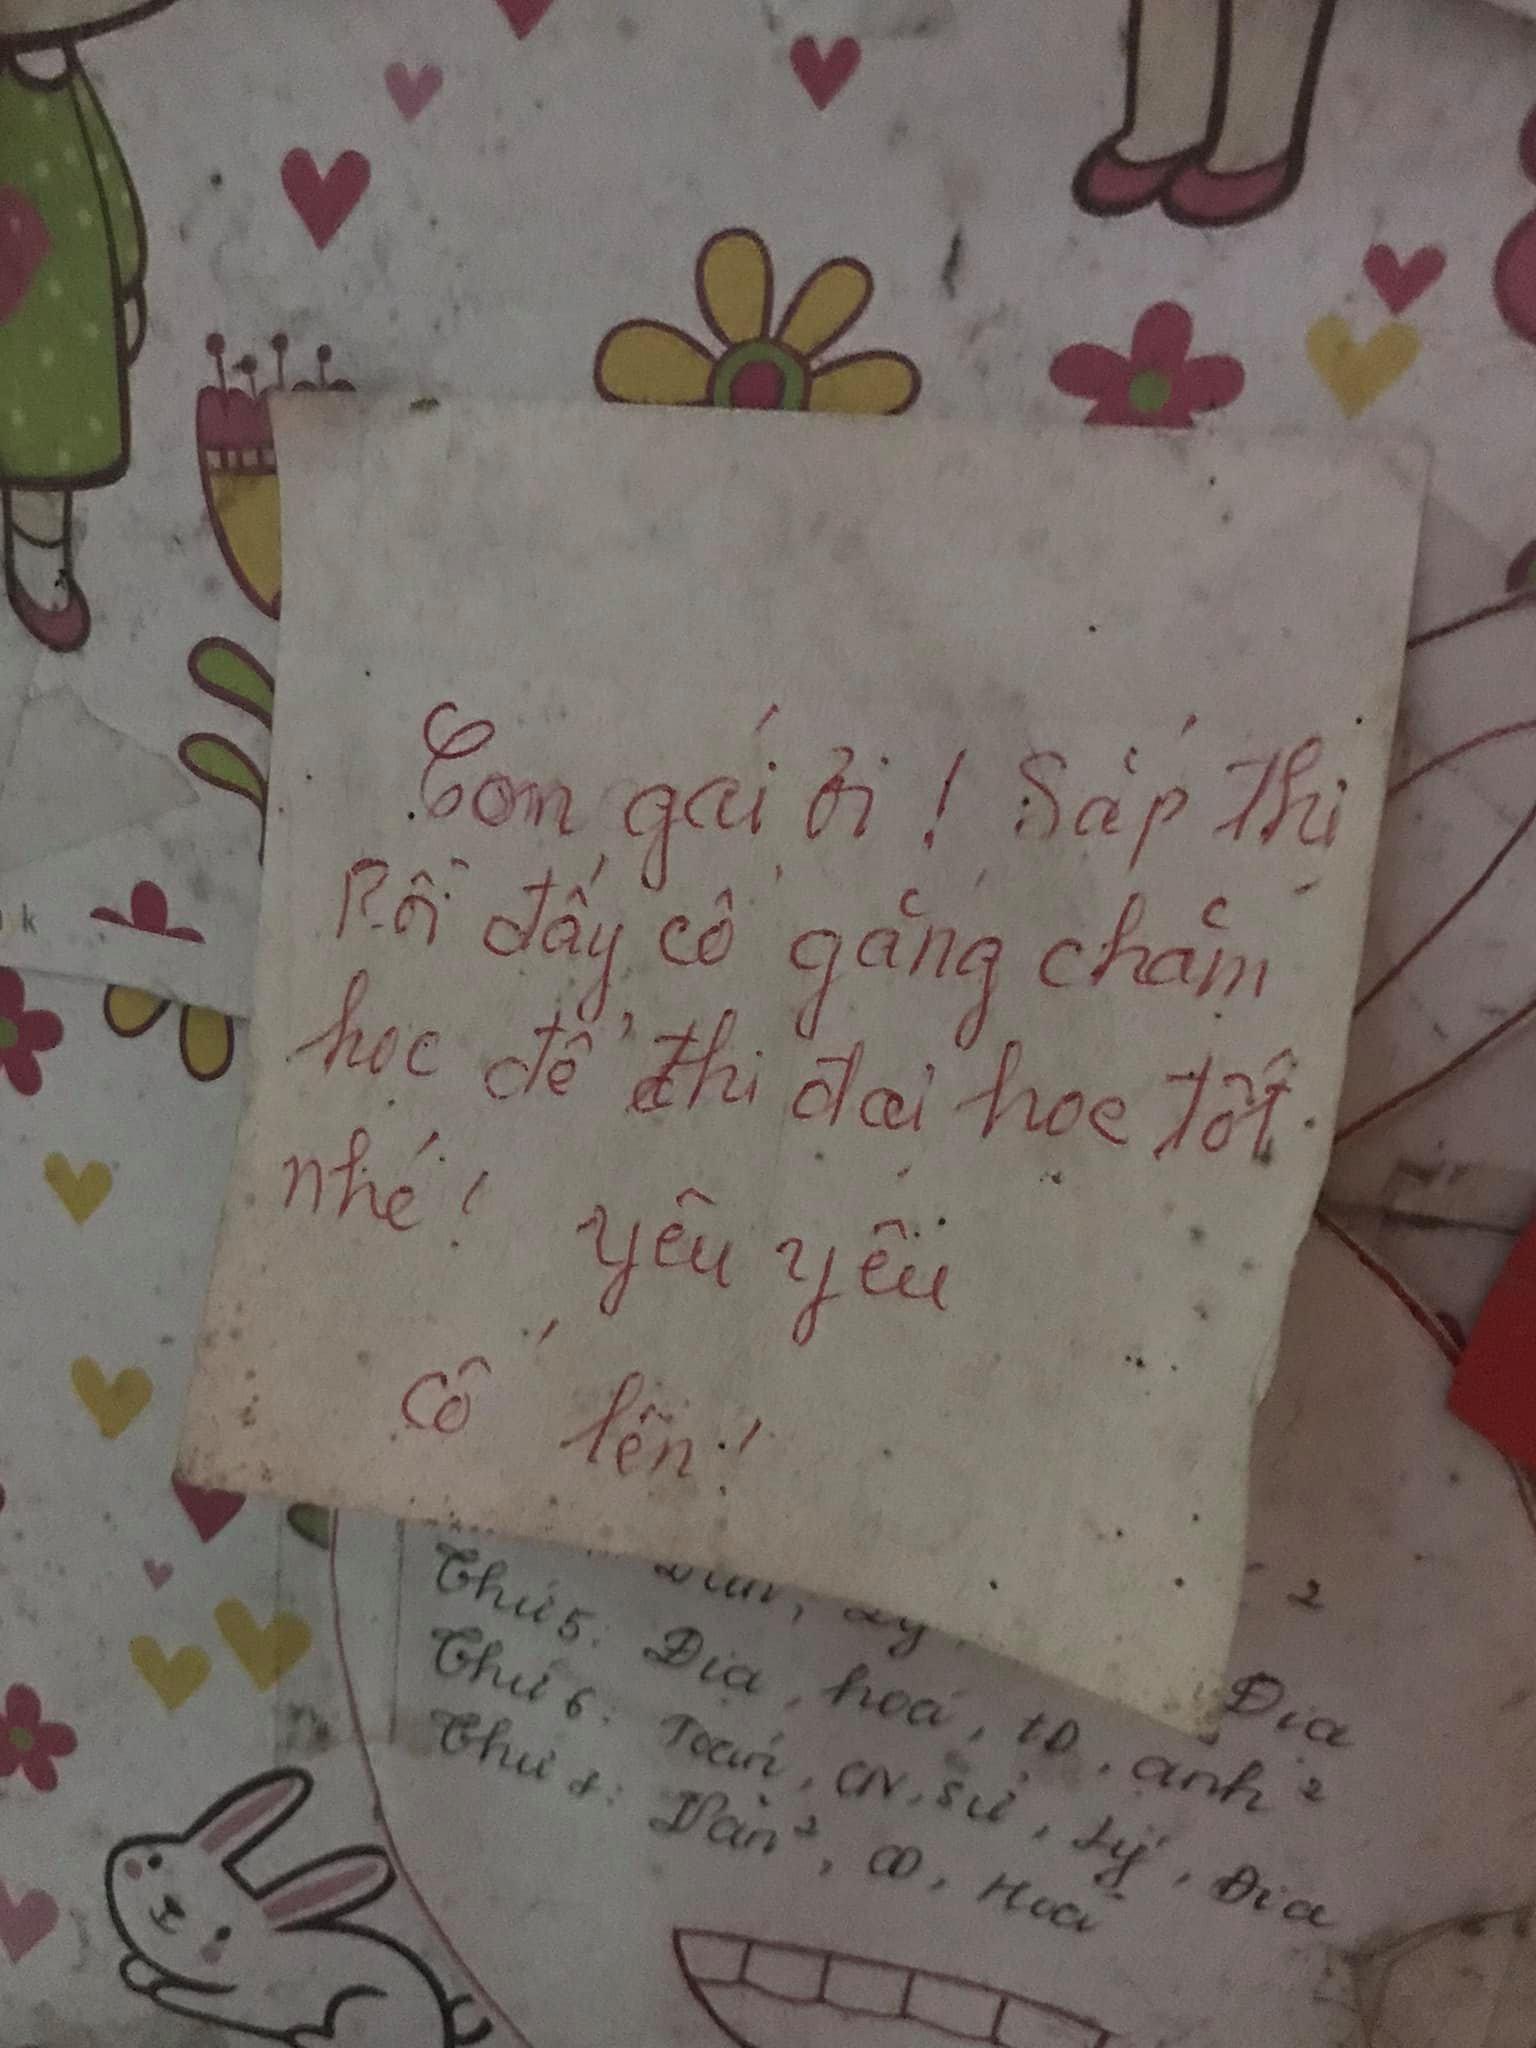 Con gái ơi! Sắp thi
Rồi đấy cố gắng chăm
học để thi đại học tốt
nhé! yêu yêu
cố lên!
k
2
Thứ 5: Địa, hoá, tD, anh²
Địa
Thứ 6: Toán, CN, Sử, Lý, Địa
Văn², CD, Hoá